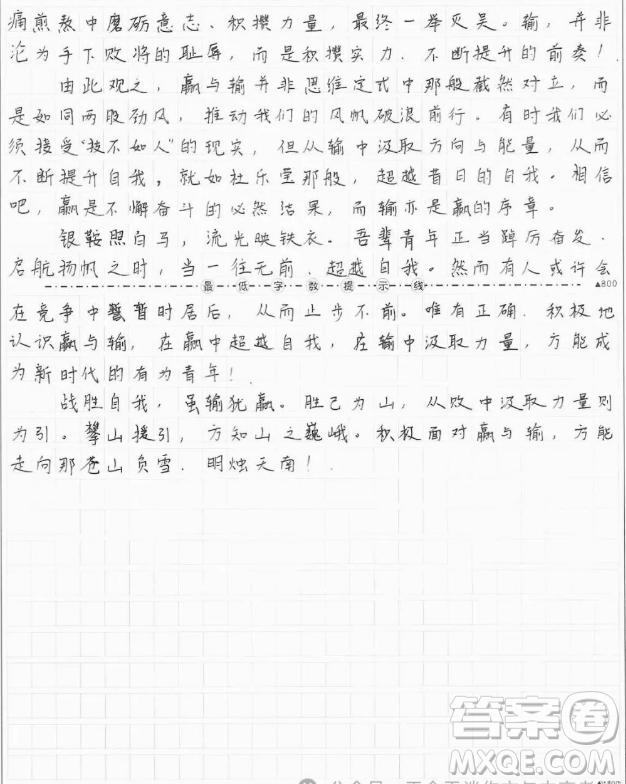 痛煎熬中磨砺意志、积攒力量，最终一举灭吴。输，并非
沦为手下败将的耻辱，而是积攒实力、不断提升的前奏！
由此观之，赢与输并非思维定式中那般截然对立，而
是如同两股劲风，推动我们的风帆破浪前行。有时我们必
须接受“技不如人”的现实，但从输中汲取方向与能量，从而
不断提升自我，就如杜乐堂那般，超越昔日的自我。相信
吧，赢是不懈奋斗的必然结果，而输亦是赢的序章。
银鞍照白马，流光映铁衣。吾辈青年正当踔厉奋发、
启航扬帆之时，当一往无前、超越自我。然而有人或许会
最低字数提示线 ▲800
在竞争中暂时居后，从而止步不前。唯有正确、积极地
认识赢与输，在赢中超越自我，在输中汲取力量，方能成
为新时代的有为青年！
战胜自我，虽输犹赢。胜己为山，从败中汲取力量则
为引。攀山援引，方知山之巍峨。积极面对赢与输，方能
走向那苍山负雪、明烛天南！
答案卷
MXQE.COM